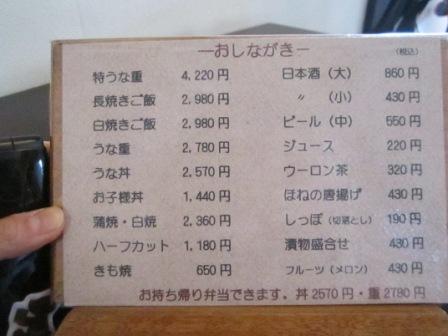 ―おしながき―
(税込)
特うな重 4,220円
長焼きご飯 2,980円
白焼きご飯 2,980円
うな重 2,780円
うな丼 2,570円
お子様丼 1,440円
蒲焼・白焼 2,360円
ハーフカット 1,180円
きも焼 650円
日本酒(大) 860円
〃 (小) 430円
ビール(中) 550円
ジュース 220円
ウーロン茶 320円
ほねの唐揚げ 430円
しっぽ(切落とし) 190円
漬物盛合せ 430円
フルーツ(メロン) 430円
お持ち帰り弁当できます。丼2570円・重2780円